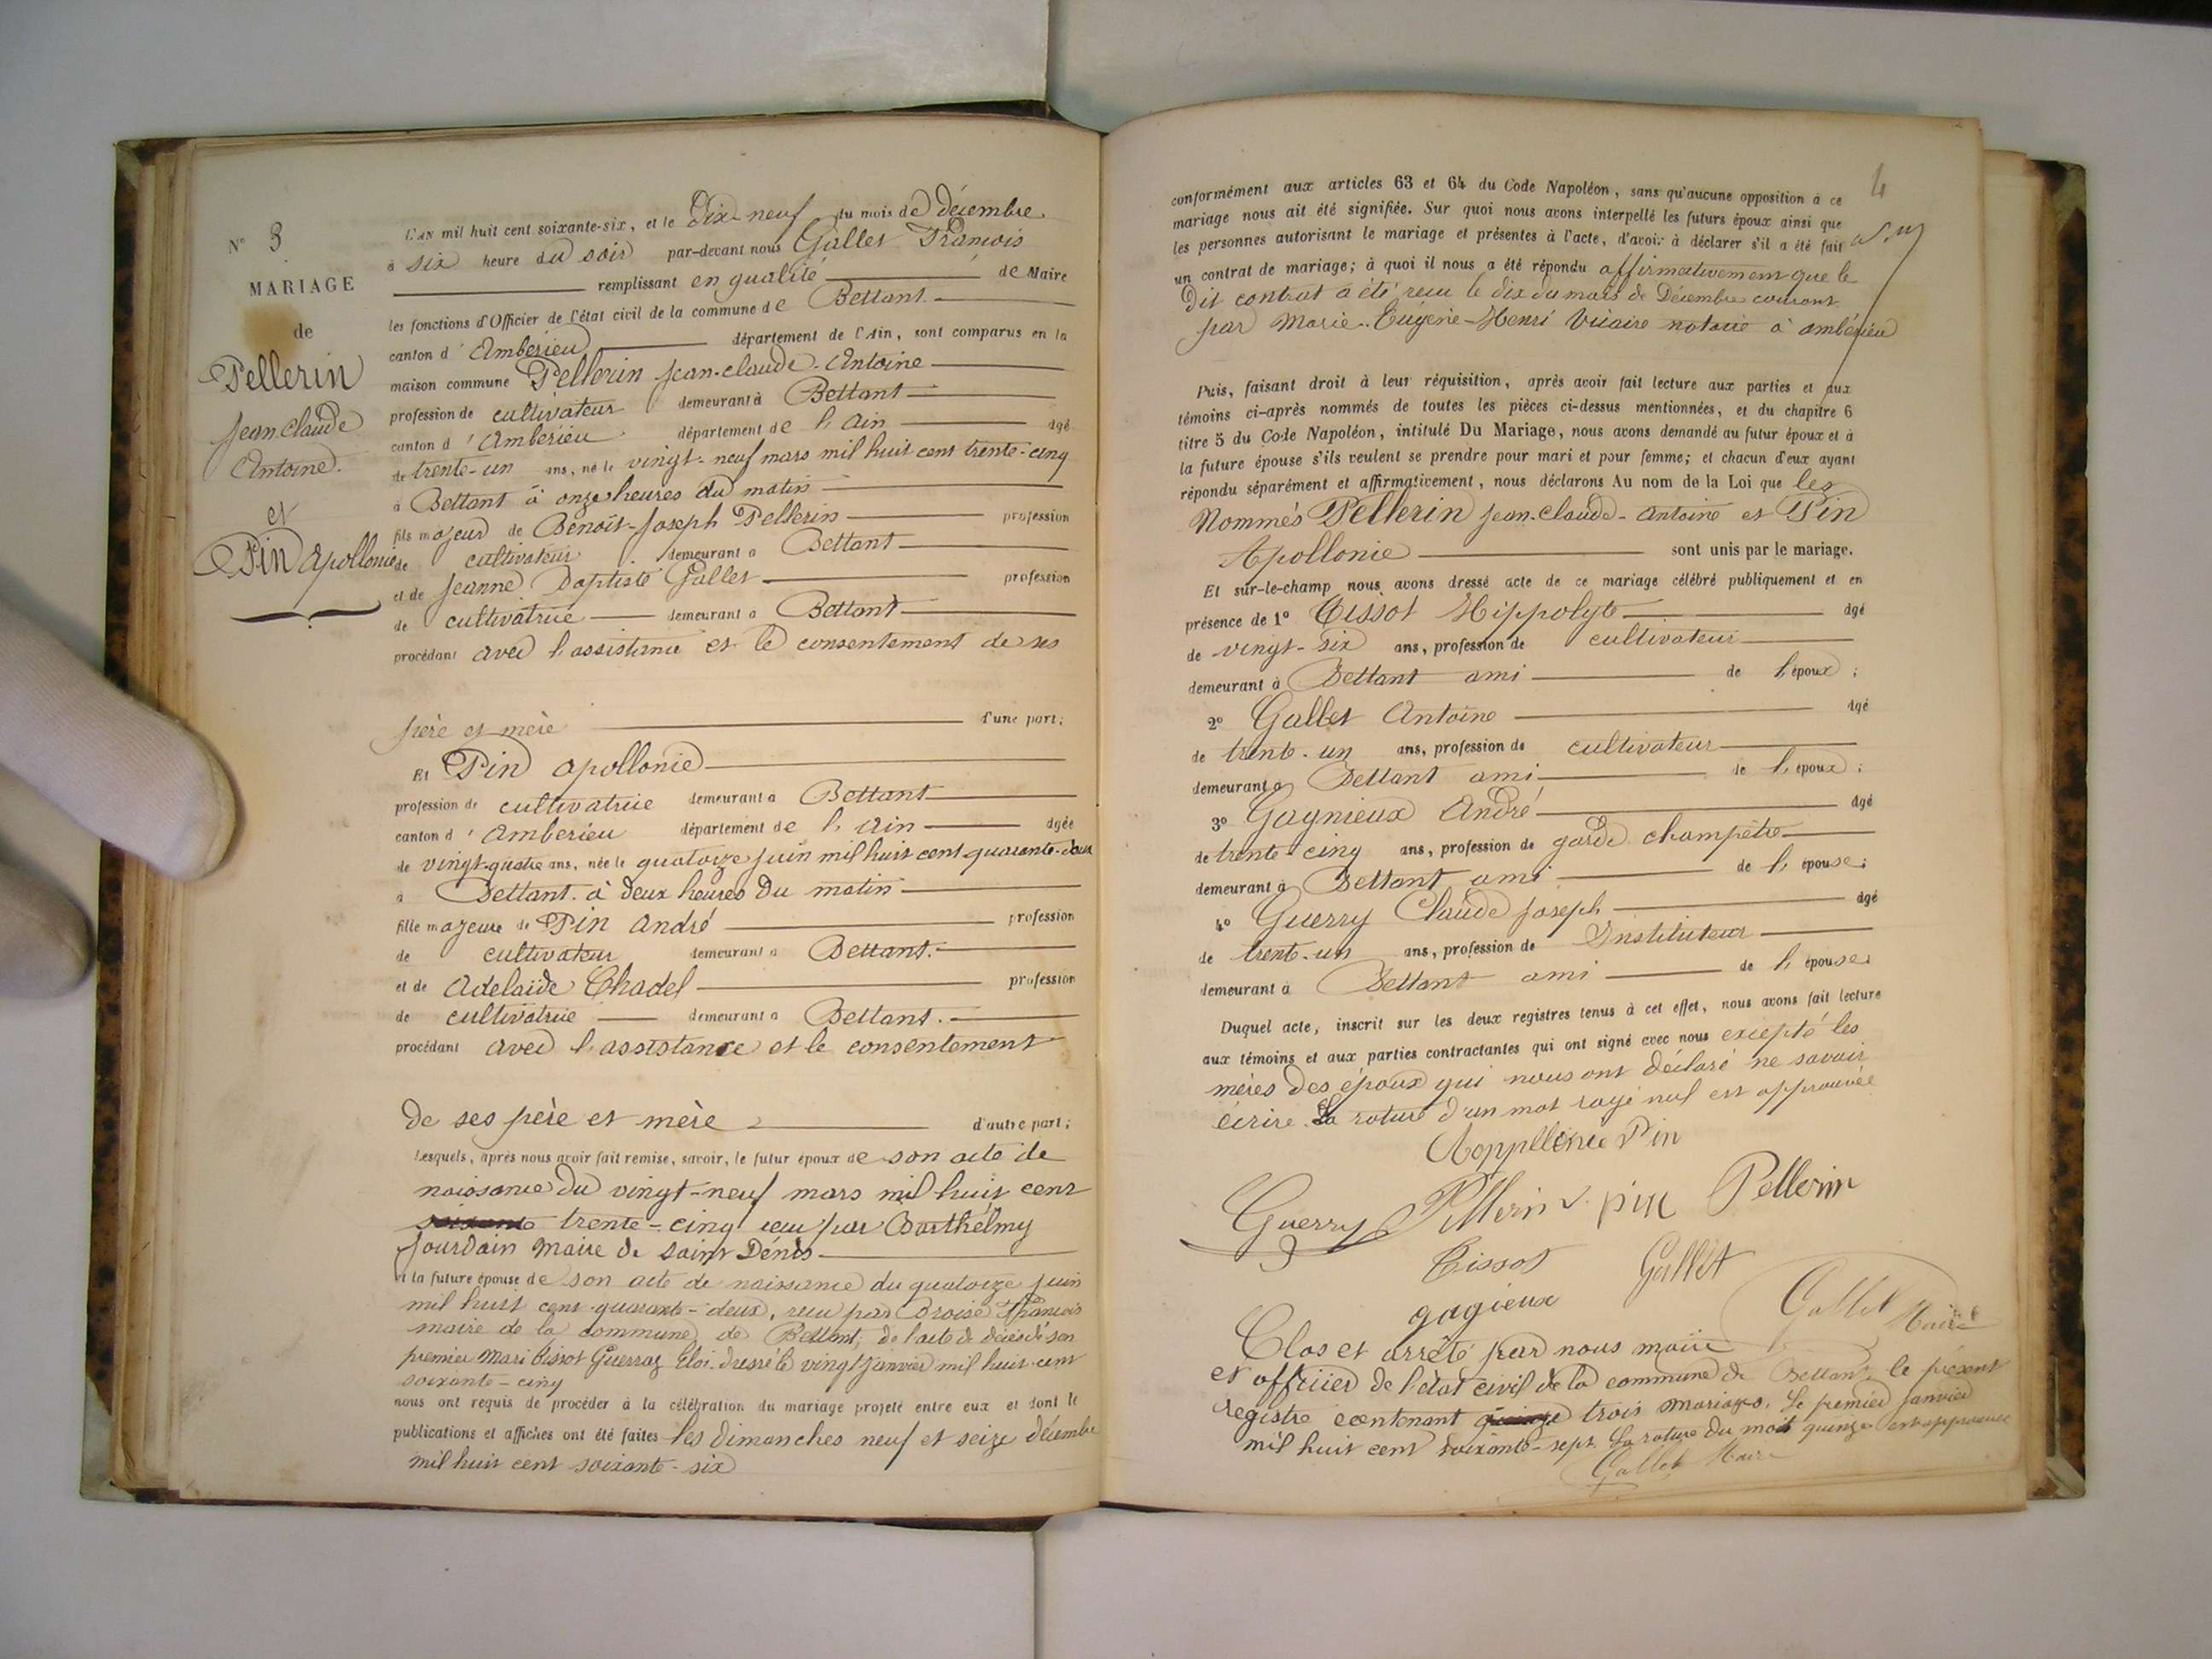 N° 3
MARIAGE
de
Pellerin
Jean Claude
Antoine.
et
Pin Apollonie
L'AN mil huit cent soixante-six, et le Dix-neuf du mois de décembre
à six heure du soir par-devant nous Gallet François
remplissant en qualité de Maire
les fonctions d'Officier de l'état civil de la commune de Bettant.
canton d'Ambérieu département de l'Ain, sont comparus en la
maison commune Pellerin Jean-Claude-Antoine
profession de cultivateur demeurant à Bettant
canton d'Ambérieu département de l'Ain âgé
de trente-un ans, né le vingt-neuf mars mil huit cent trente-cinq
à Bettant à onze heures du matin
fils majeur de Benoît-Joseph Pellerin profession
de cultivateur demeurant à Bettant
et de Jeanne Baptiste Gallet profession
de cultivatrice demeurant à Bettant
procédant avec l'assistance et le consentement de ses
père et mère d'une part;
Et Pin apollonie
profession de cultivatrice demeurant à Bettant
canton d'Ambérieu département de l'Ain âgée
de vingt-quatre ans, née le quatorze juin mil huit cent quarante-deux
à Bettant à deux heures du matin
fille majeure de Pin André profession
de cultivateur demeurant à Bettant.
et de Adelaïde Chadel profession
de cultivatrice demeurant à Bettant.
procédant avec l'assistance et le consentement
de ses père et mère d'autre part;
Lesquels, après nous avoir fait remise, savoir, le futur époux de son acte de
naissance du vingt-neuf mars mil huit cent
soixante trente-cinq reçu par Barthélmy
Jourdain Maire de saint Dénis
et la future épouse de son acte de naissance du quatorze juin
mil huit cent quarante-deux, reçu par Broise François
maire de la commune de Bettant, de l'acte de décès de son
premier mari Tissot Guerraz Eloi dressé le vingt janvier mil huit cent
soixante-cinq
nous ont requis de procéder à la célébration du mariage projeté entre eux et dont le
publications et affiches ont été faites les dimanches neuf et seize décembre
mil huit cent soixante-six
4
conformément aux articles 63 et 64 du Code Napoléon, sans qu'aucune opposition à ce
mariage nous ait été signifiée. Sur quoi nous avons interpellé les futurs époux ainsi que
les personnes autorisant le mariage et présentes à l'acte, d'avoir à déclarer s'il a été fait
un contrat de mariage; à quoi il nous a été répondu affirmativement que le
Dit contrat a été reçu le dix du mois de Décembre courant
par Marie-Eugène-Henri Vicaire notaire à ambérieu
Puis, faisant droit à leur réquisition, après avoir fait lecture aux parties et aux
témoins ci-après nommés de toutes les pièces ci-dessus mentionnées, et du chapitre 6
titre 5 du Code Napoléon, intitulé Du Mariage, nous avons demandé au futur époux et à
la future épouse s'ils veulent se prendre pour mari et pour femme; et chacun d'eux ayant
répondu séparément et affirmativement, nous déclarons Au nom de la Loi que les
Nommés Pellerin Jean-Claude-Antoine et Pin
Apollonie sont unis par le mariage.
Et sur-le-champ nous avons dressé acte de ce mariage célébré publiquement et en
présence de 1° Tissot Hippolyte âgé
de vingt-six ans, profession de cultivateur
demeurant à Bettant ami de l'époux;
2° Gallet Antoine âgé
de trente-un ans, profession de cultivateur
demeurant à Bettant ami de l'époux;
3° Gagnieux André âgé
de trente-cinq ans, profession de garde champêtre
demeurant à Bettant ami de l'épouse;
4° Guerry Claude Joseph âgé
de trente-un ans, profession de Instituteur
demeurant à Bettant ami de l'épouse
Duquel acte, inscrit sur les deux registres tenus à cet effet, nous avons fait lecture
aux témoins et aux parties contractantes qui ont signé avec nous excepté les
mères des époux qui nous ont déclaré ne savoir
écrire. La rature d'un mot rayé nul est approuvée
Aoppllonie Pin
Guerry Pellerin pin Pellerin
Tissot Gallet
gagieux Gallet Maire
Clos et arrêté par nous maire
et officier de l'état civil de la commune de Bettant le présent
registre contenant quinze trois mariages. Le premier janvier
mil huit cent soixante-sept. La rature du mot quinze est approuvée
Gallet Maire